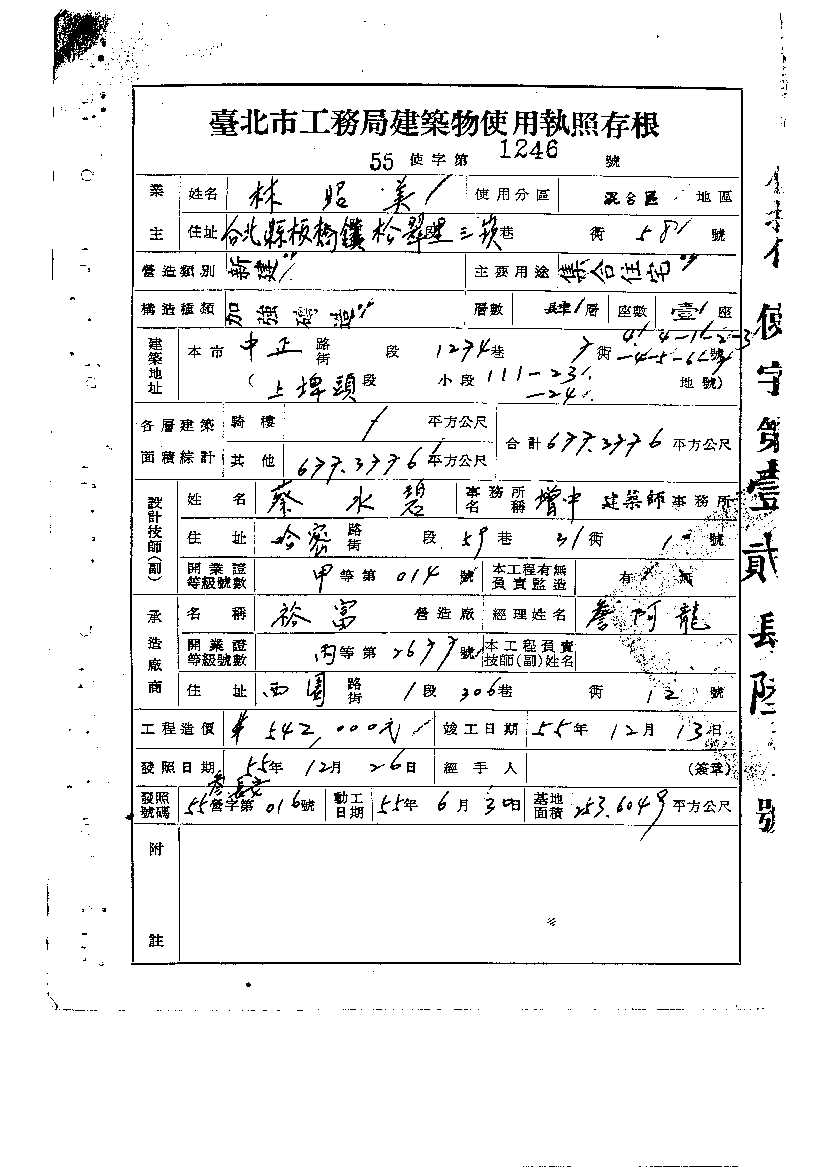 臺北市工務局建築物使用執照存根
55 使字第 1246 號
業主 姓名 林昭美 使用分區 混合區 地區
住址 台北縣板橋鎮松翠里三崁巷 街 58 號
營造類別 新建 主要用途 集合住宅
構造種類 加強磚造 層數 層 座數 壹座
建築地址 本市 中正 路街 段 1274巷 街 4-1-2-3 -4-5-6 號
(上埤頭段 小段 111-23 -24 地號)
各層建築面積綜計 騎樓 / 平方公尺 合計 677.3776 平方公尺
其他 677.3776 平方公尺
設計技師(副) 姓名 蔡水碧 事務所名稱 增中 建築師事務所
住址 哈密 路街 段 59巷 31街 1 號
開業證等級號數 甲等第 014 號 本工程有無負責監造 有 無
承造廠商 名稱 裕富 營造廠 經理姓名 詹阿龍
開業證等級號數 丙等第 2677 號 本工程負責技師(副)姓名
住址 西園 路街 1段 306巷 街 12 號
工程造價 542,000元 竣工日期 55年12月13日
發照日期 55年12月26日 經手人 (簽章)
發照號碼 55營字第 016 號 動工日期 55年6月30日 基地面積 253.6049 平方公尺
附註
使字第壹貳長陸號